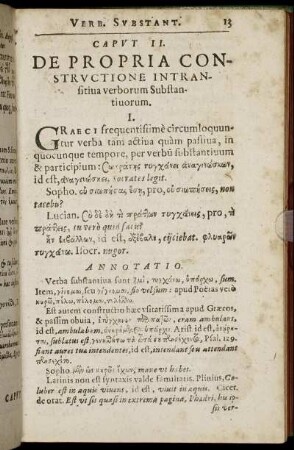 VERB. SVBSTANT. 13
CAPVT II.
DE PROPRIA CON-
STRVCTIONE INTRAN-
sitiua verborum Substan-
tiuorum.
I.
GRAECI frequentissimè circumloquun-
tur verba tam actiua quàm passiua, in
quocunque tempore, per verbũ substantiuum
& participium: Σωκράτης τυγχάνει ἀναγινώσκων,
id est, ἀναγινώσκει, socrates legit.
Sopho. οὐ σιωπήσας ἔσῃ, pro, οὐ σιωπήσεις, non
tacebis?
Lucian. Σὺ δὲ δὴ τί πράττων τυγχάνεις, pro, τί
πράττεις, tu verò quid facis?
ἦν ἐκβάλλων, id est, ἐξέβαλε, eijciebat. φλυαρῶν
τυγχάνω. Isocr. nugor.
ANNOTATIO.
Verba substantiua sunt εἰμὶ, τυγχάνω, ὑπάρχω, sum.
Item, γίνομαι, seu γίγνομαι, fio vel sum: apud Poëtas verò
κυρῶ, πέλω, πέλομαι,
Est autem constructio hæc vsitatissima apud Græcos,
& passim obuia, περιπατῶν, eram ambulans,
id est, ambulabam, ὑπάρχει. Arist id est,
sublatus est, Psal. 129.
fiant aures tua intendentes, id est, intendant seu attendant
Sopho. ἔχων, mane vt habes.
Latinis non est syntaxis valde familiaris. Plinius, Co-
luber est in aquis viuens, id est, viuit in aquis. Cicer.
de orat. Est vt sis quasi in extrema pagina, Phædri, hu eps
sis ver-